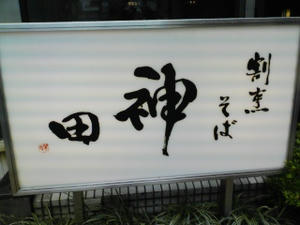 割烹
そば
神田